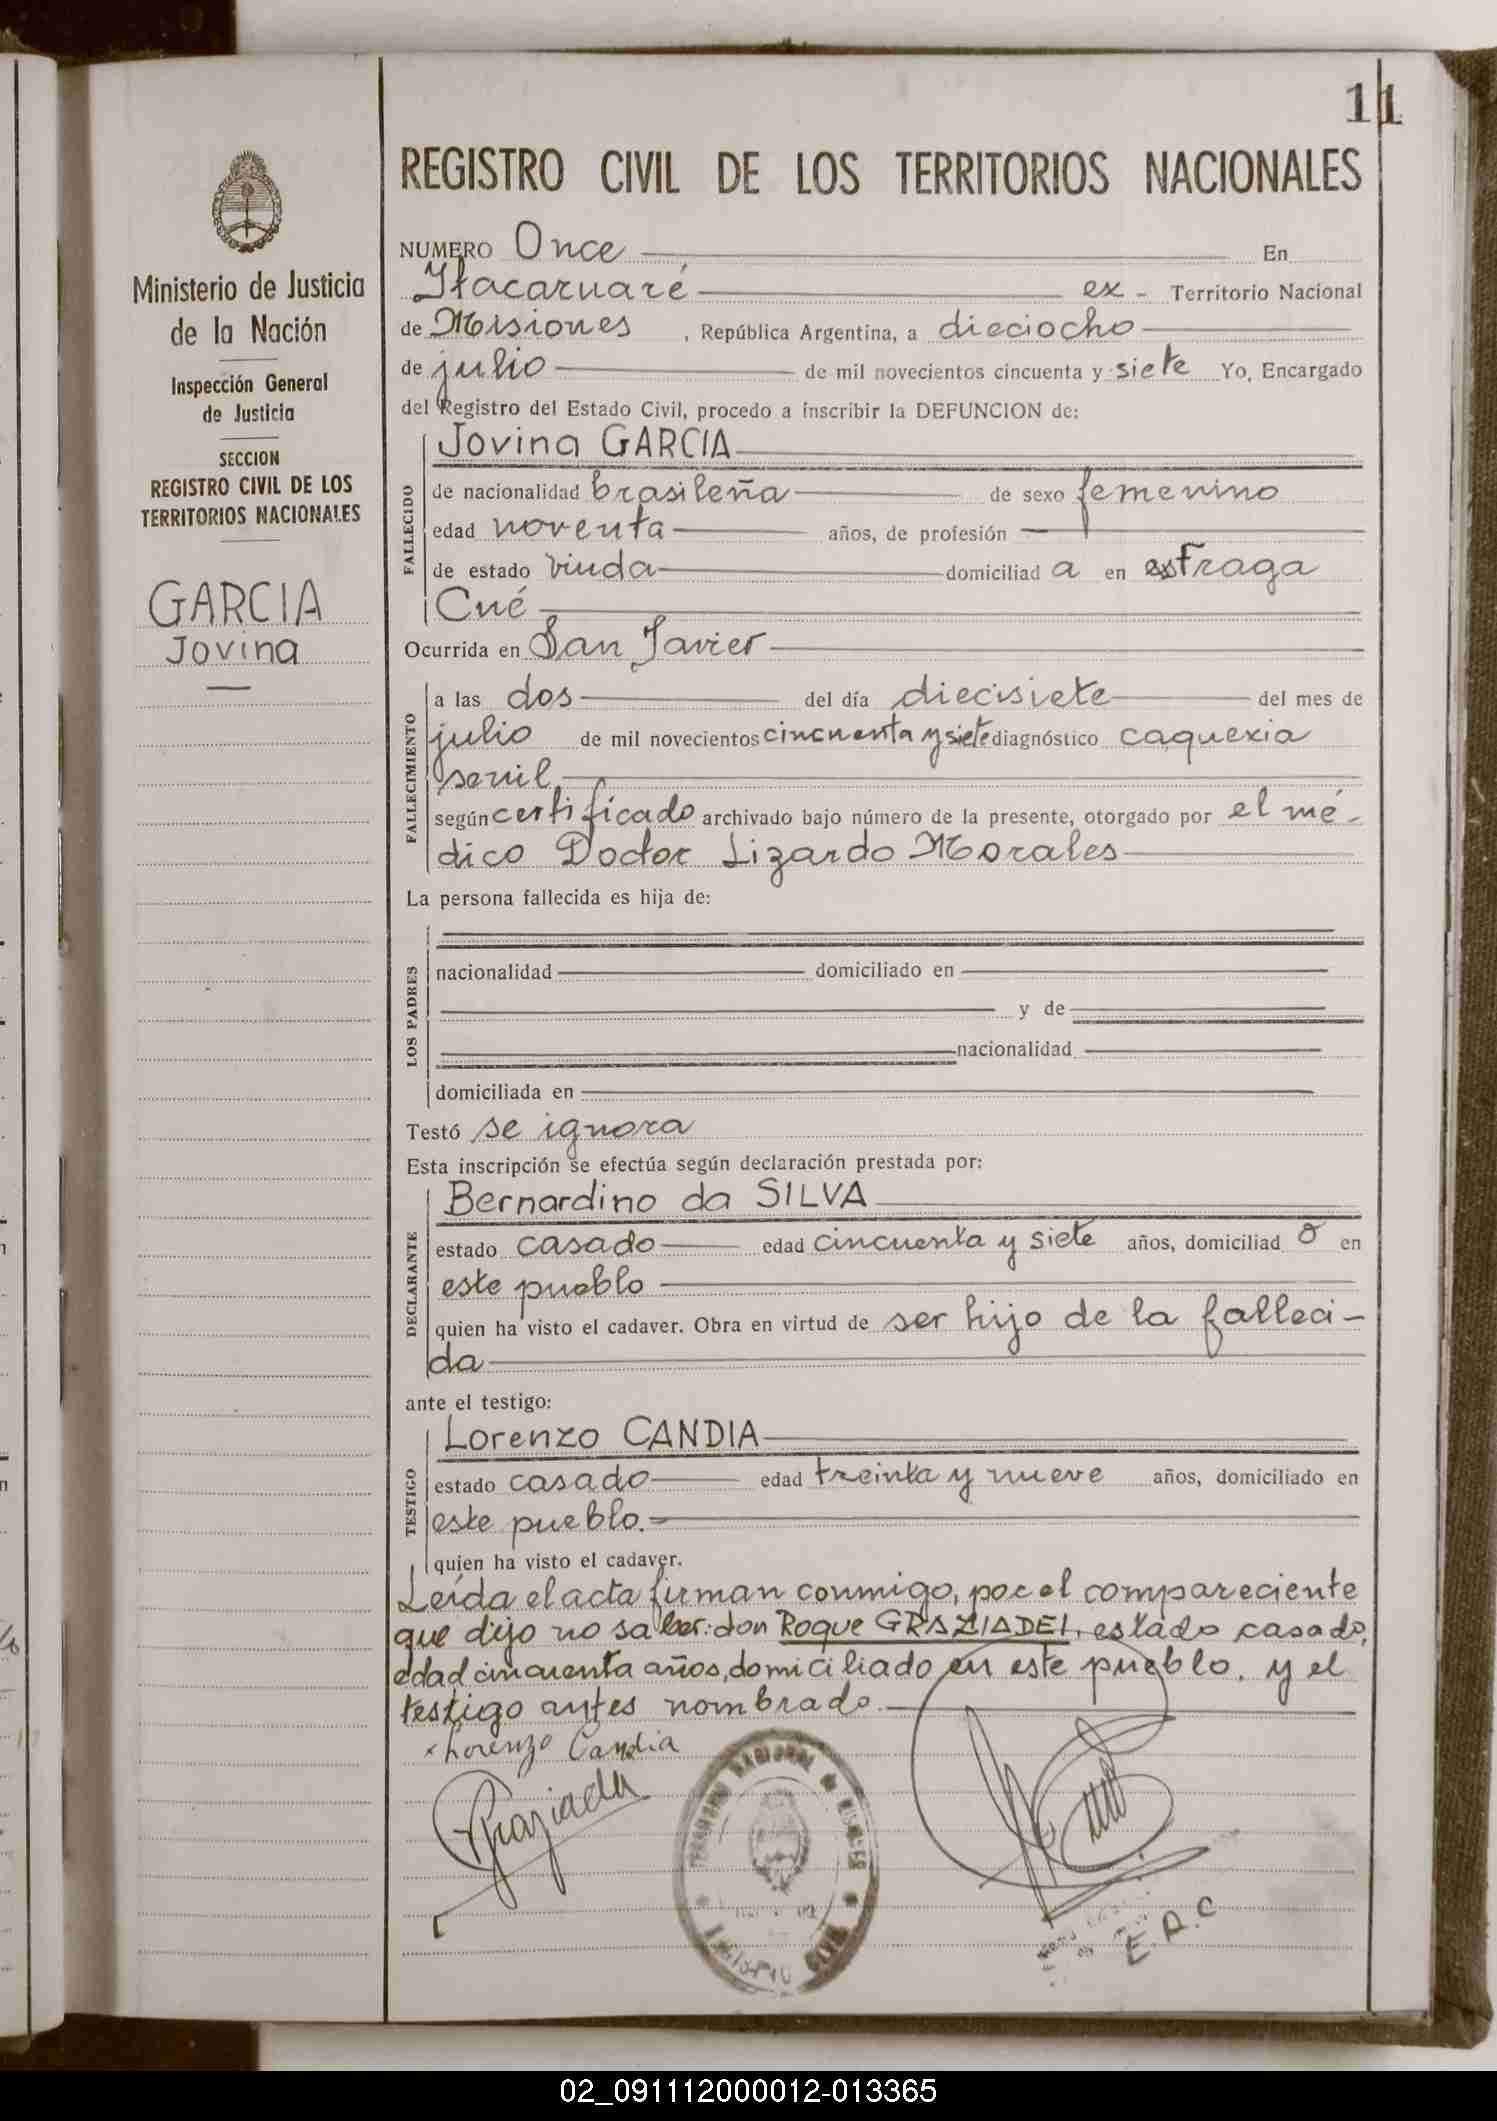 11
REGISTRO CIVIL DE LOS TERRITORIOS NACIONALES
Ministerio de Justicia
de la Nación
Inspección General
de Justicia
SECCION
REGISTRO CIVIL DE LOS
TERRITORIOS NACIONALES
GARCIA
Jovina
NUMERO Once En
Itacaruaré ex - Territorio Nacional
de Misiones, República Argentina, a dieciocho
de julio de mil novecientos cincuenta y siete Yo, Encargado
del Registro del Estado Civil, procedo a inscribir la DEFUNCION de:
FALLECIDO
Jovina GARCIA
de nacionalidad brasileña de sexo femenino
edad noventa años, de profesión
de estado viuda domiciliad a en Fraga
Cué
Ocurrida en San Javier
FALLECIMIENTO
a las dos del día diecisiete del mes de
julio de mil novecientos cincuenta y siete diagnóstico caquexia
senil
según certificado archivado bajo número de la presente, otorgado por el mé-
dico Doctor Lizardo Morales
La persona fallecida es hija de:
LOS PADRES
nacionalidad domiciliado en
y de
nacionalidad
domiciliada en
Testó se ignora
Esta inscripción se efectúa según declaración prestada por:
DECLARANTE
Bernardino da SILVA
estado casado edad cincuenta y siete años, domiciliad o en
este pueblo
quien ha visto el cadaver. Obra en virtud de ser hijo de la falleci-
da
ante el testigo:
TESTIGO
Lorenzo CANDIA
estado casado edad treinta y nueve años, domiciliado en
este pueblo.
quien ha visto el cadaver.
Leída el acta firman conmigo, por el compareciente
que dijo no saber: don Roque GRAZIADEI, estado casado,
edad cincuenta años, domiciliado en este pueblo, y el
testigo antes nombrado.
x Lorenzo Candia
Graziadei
TERRITORIO NACIONAL DE MISIONES
E.R.C
02_091112000012-013365